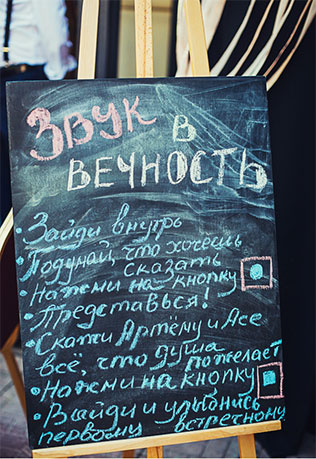 Звук
в
вечность
• Зайди внутрь
• Подумай, что хочешь
сказать
• Нажми на кнопку
• Представься!
• Скажи Артёму и Асе
всё, что душа
пожелает
• Нажми на кнопку
• Выйди и улыбнись
первому встречному